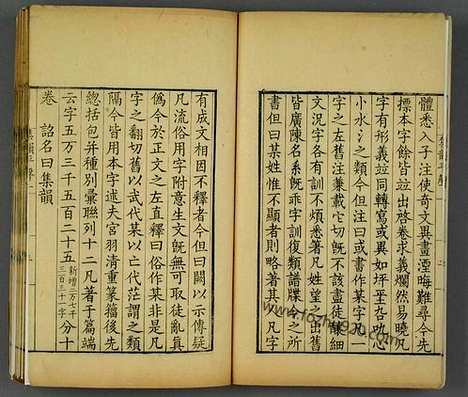 體悉入子注使奇文異畫湮晦難尋今先
摽本字餘皆竝出啓卷求義爛然易曉凡
字有形義竝同轉寫或異如坪𡋑叴叴心
小水氵之類今但注曰或書作某字凡一
字之左舊注兼載它切旣不該盡徒釀細
文況字各有訓不煩悉著凡姓望之出舊
皆廣陳名系旣乖字訓復類譜牒今之所
書但曰某姓惟不顯者則略著其人凡字
有成文相因不釋者今但曰闕以示傳疑
凡流俗用字附意生文旣無可取徒亂眞
僞今於正文之左直釋曰俗作某非是凡
字之翻切舊以武代某以亡代茫謂之類
隔今皆用本字述夫宮羽淸重篆籒後先
總括包幷種別彙聯列十二凡著于篇端
云字五万三千五百二十五新增二万七千三百三十一字分十
卷詔名曰集韻